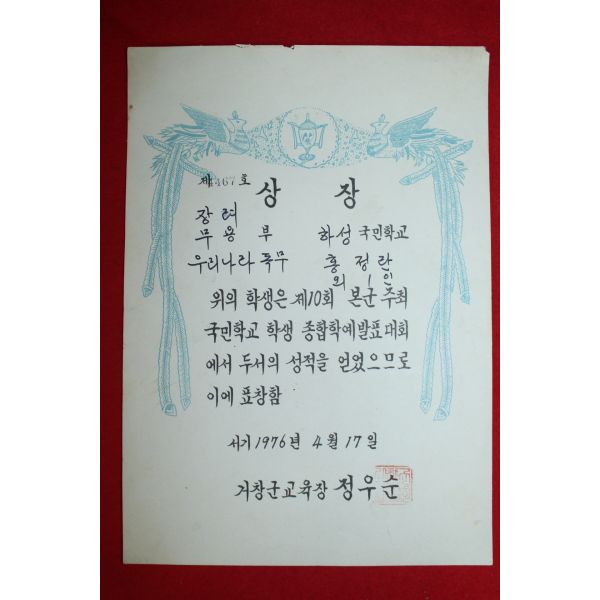 제467호
상장
장려
무용부 하성 국민학교
우리나라 독무 홍정란
외 1인
위의 학생은 제10회 본군 주최
국민학교 학생 종합학예발표대회
에서 두서의 성적을 얻었으므로
이에 표창함
서기 1976년 4월 17일
거창군교육장 정우순